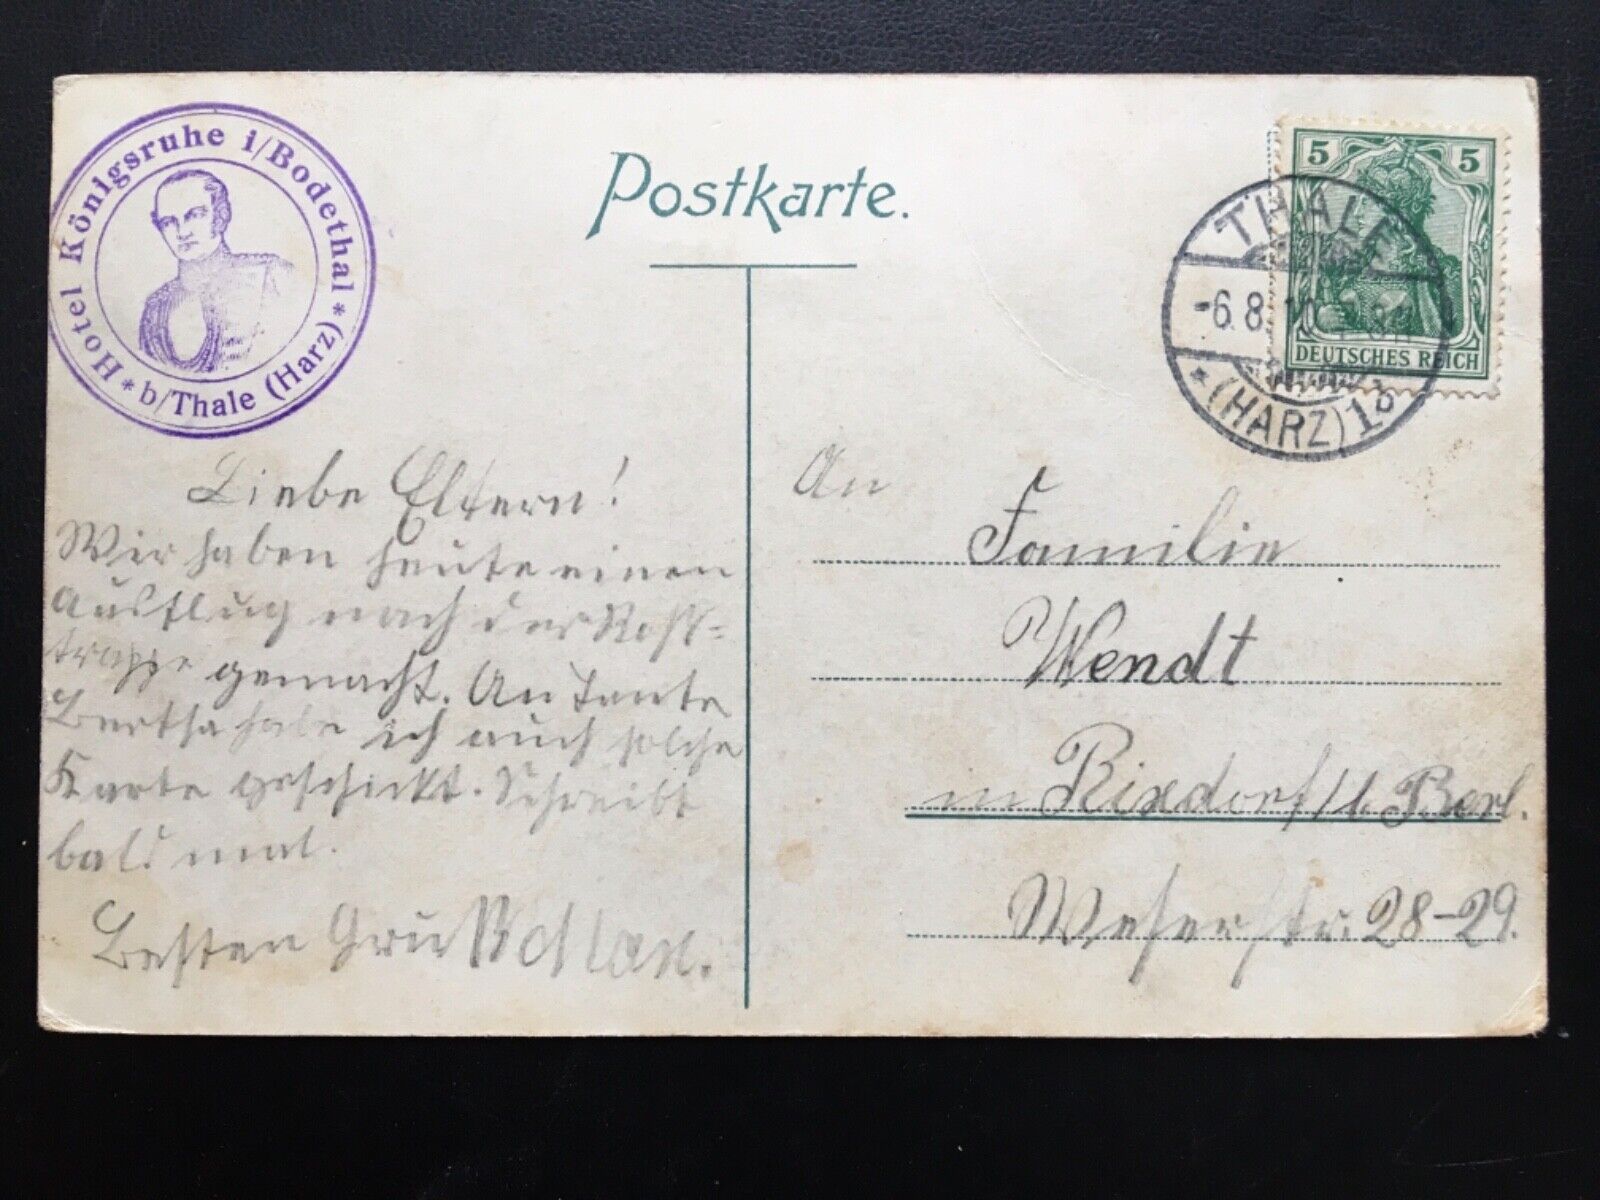 Hotel Königsruhe i/Bodethal *
* b/Thale (Harz)
Postkarte.
5 5
DEUTSCHES REICH
THALE
-6.8.10
* (HARZ) 1b
Liebe Eltern!
Wir haben heute einen
Ausflug nach der Roß-
trappe gemacht. An Tante
Bertha habe ich auch solche
Karte geschickt. Schreibt
bald mal.
Besten Gruß
An
Familie
Wendt
in Rixdorf/b. Berl.
Weserstr. 28-29.